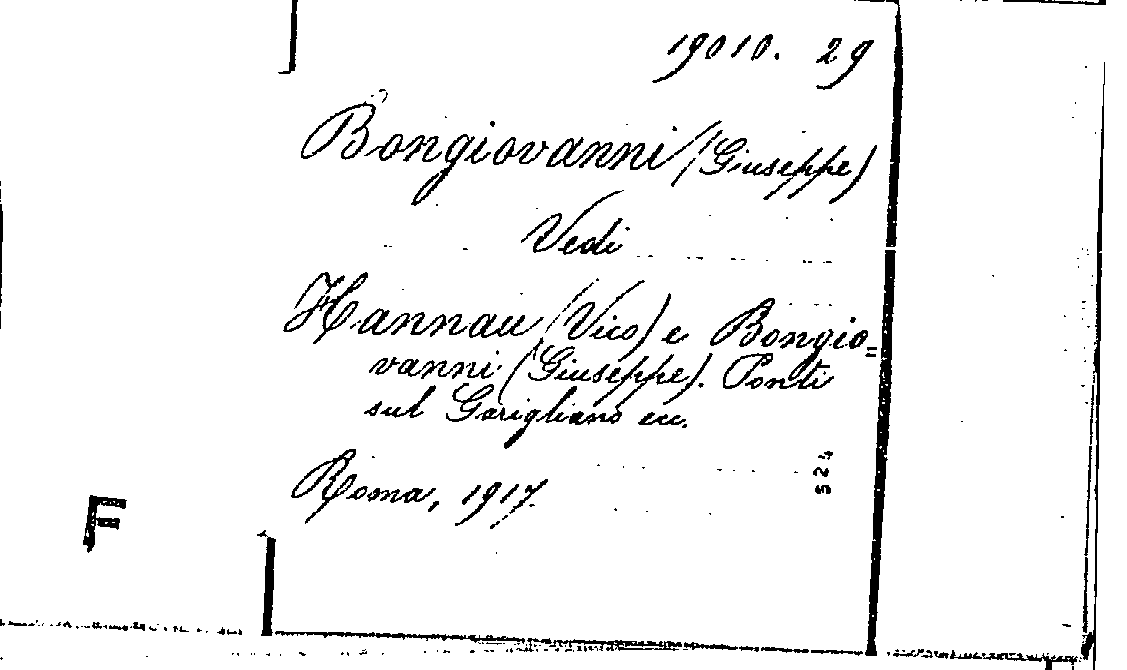 19010. 29
Bongiovanni (Giuseppe)
Vedi
Hannau (Vico) e Bongio=
vanni (Giuseppe). Ponti
sul Garigliano ecc.
Roma, 1917.
524
F